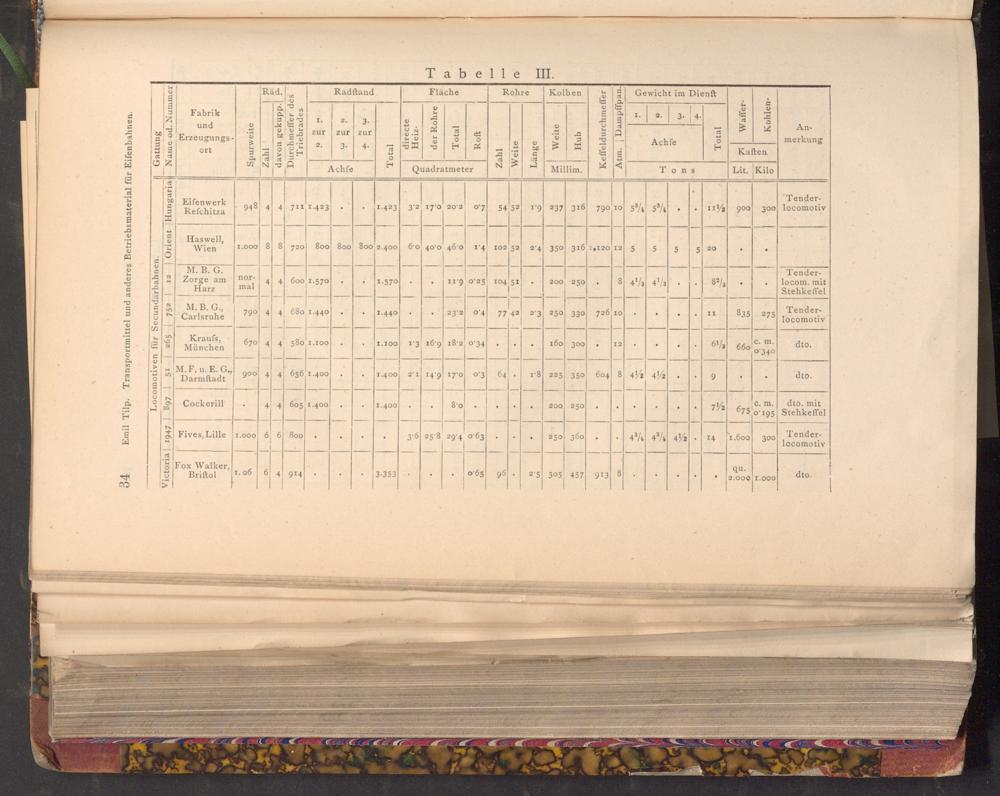 34 Emil Tilp. Transportmittel und anderes Betriebsmaterial für Eiſenbahnen.
Tabelle III.
Gattung
Name od. Nummer
Fabrik und Erzeugungs-ort
Spurweite
Räd.
Zahl
davon gekupp.
Durchmeſſer des Triebrades
Radſtand
1. zur 2.
2. zur 3.
3. zur 4.
Achſe
Total
Fläche
directe Heiz-
der Rohre
Total
Roſt
Quadratmeter
Rohre
Zahl
Weite
Länge
Kolben
Weite
Hub
Millim.
Keſſeldurchmeſſer
Atm. Dampfſpan.
Gewicht im Dienſt
1. 2. 3. 4.
Achſe
Total
Tons
Waſſer-
Kohlen-
Kaſten
Lit. Kilo
An-merkung
Locomotiven für Secundärbahnen.
Hungaria Eiſenwerk Reſchitza 948 4 4 711 1.423 . . 1.423 3·2 17·0 20·2 0·7 54 52 1·9 237 316 790 10 5¾ 5¾ . . 11½ 900 300 Tender-locomotiv
Orient Haswell, Wien 1.000 8 8 720 800 800 800 2.400 6·0 40·0 46·0 1·4 102 52 2·4 350 316 1,120 12 5 5 5 5 20 . .
12 M. B. G. Zorge am Harz nor-mal 4 4 600 1.570 . . 1.570 . . 11·9 0·25 104 51 . 200 250 . 8 4⅓ 4⅓ . . 8⅔ . . Tender-locom. mit Stehkeſſel
752 M. B. G., Carlsruhe 790 4 4 680 1.440 . . 1.440 . . 23·2 0·4 77 42 2·3 250 330 726 10 . . . . 11 835 275 Tender-locomotiv
265 Krauſs, München 670 4 4 580 1.100 . . 1.100 1·3 16·9 18·2 0·34 . . . 160 300 . 12 . . . . 6½ 660 c. m. 0·340 dto.
51 M. F. u. E. G., Darmſtadt 900 4 4 656 1.400 . . 1.400 2·1 14·9 17·0 0·3 64 . 1·8 225 350 604 8 4½ 4½ . . 9 . . dto.
897 Cockerill . 4 4 605 1.400 . . 1.400 . . 8·0 . . . . 200 250 . . . . . . 7½ 675 c. m. 0·195 dto. mit Stehkeſſel
1947 Fives, Lille 1.000 6 6 800 . . . . 3·6 25·8 29·4 0·63 . . . 250 360 . . 4¾ 4¾ 4½ . 14 1.600 300 Tender-locomotiv
Victoria Fox Walker, Briſtol 1.06 6 4 914 . . . 3.353 . . . 0·65 96 . 2·5 305 457 913 8 . . . . . qu. 2.000 1.000 dto.